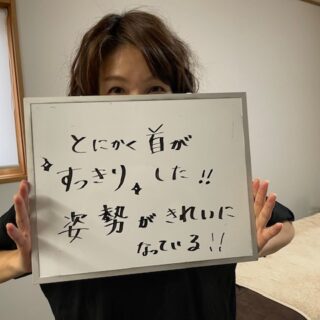 とにかく首が
すっきりした!!
姿勢がきれいに
なっている!!